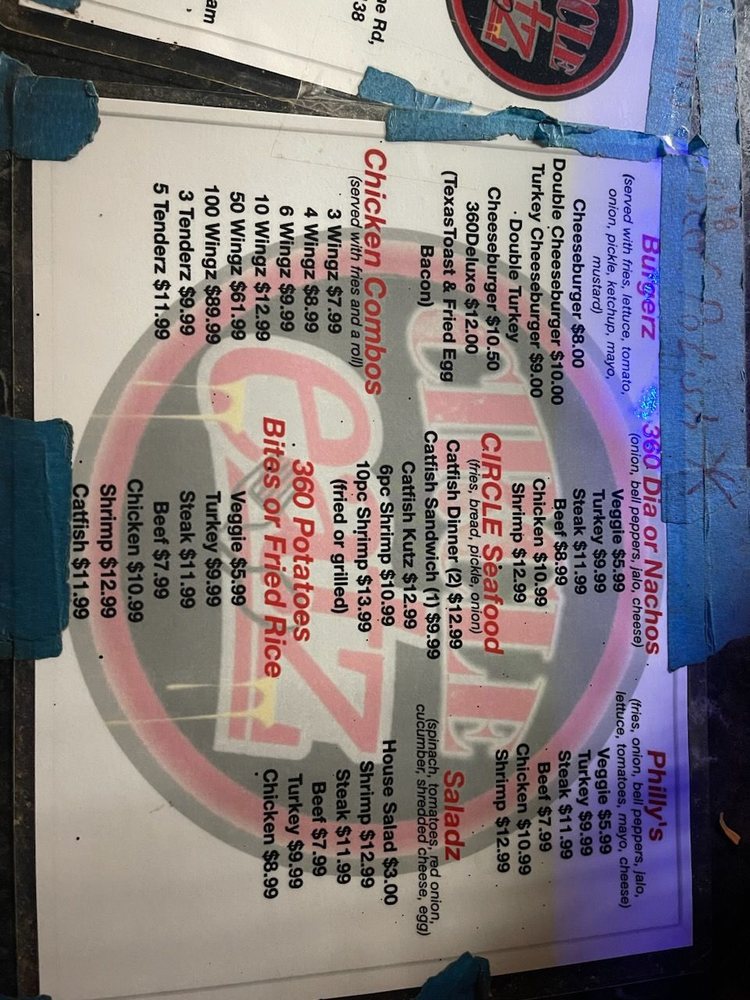 ne Rd,
38
am
CLE
tz
Burgerz
(served with fries, lettuce, tomato,
onion, pickle, ketchup, mayo,
mustard)
Cheeseburger $8.00
Double Cheeseburger $10.00
Turkey Cheeseburger $9.00
Double Turkey
Cheeseburger $10.50
360Deluxe $12.00
(TexasToast & Fried Egg
Bacon)
Chicken Combos
(served with fries and a roll)
3 Wingz $7.99
4 Wingz $8.99
6 Wingz $9.99
10 Wingz $12.99
50 Wingz $61.99
100 Wingz $89.99
3 Tenderz $9.99
5 Tenderz $11.99
360 Dia or Nachos
(onion, bell peppers, jalo, cheese)
Veggie $5.99
Turkey $9.99
Steak $11.99
Beef $8.99
Chicken $10.99
Shrimp $12.99
CIRCLE Seafood
(fries, bread, pickle, onion)
Catfish Dinner (2) $12.99
Catfish Sandwich (1) $9.99
Catfish Kutz $12.99
6pc Shrimp $10.99
10pc Shrimp $13.99
(fried or grilled)
360 Potatoes
Bites or Fried Rice
Veggie $5.99
Turkey $9.99
Steak $11.99
Beef $7.99
Chicken $10.99
Shrimp $12.99
Catfish $11.99
Philly's
(fries, onion, bell peppers, jalo,
lettuce, tomatoes, mayo, cheese)
Veggie $5.99
Turkey $9.99
Steak $11.99
Beef $7.99
Chicken $10.99
Shrimp $12.99
Saladz
(spinach, tomatoes, red onion,
cucumber, shredded cheese, egg)
House Salad $3.00
Shrimp $12.99
Steak $11.99
Beef $7.99
Turkey $9.99
Chicken $8.99
CIRCLE
eatz